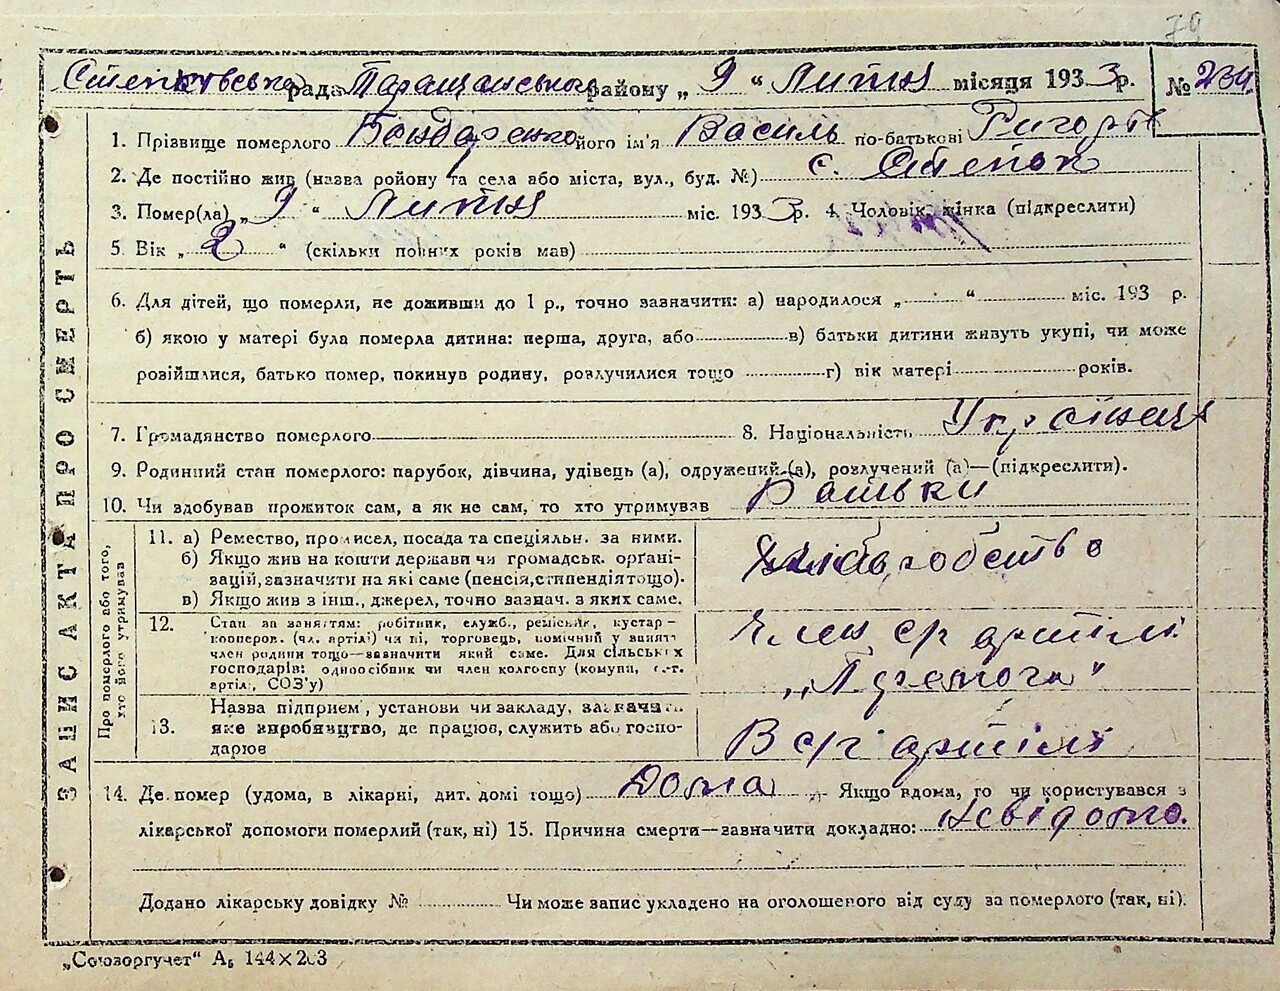 70
Степківська рада Таращанського району „ 9 “ Липня місяця 1933 р. № 234
1. Прізвище померлого Бондаренко його ім'я Василь по-батькові Григор.
2. Де постійно жив (назва ройону та села або міста, вул., буд. №) с. Степок
3. Помер(ла) „ 9 “ Липня міс. 1933 р. 4. Чоловік, жінка (підкреслити)
5. Вік „ 2 “ (скільки повних років мав)
6. Для дітей, що померли, не доживши до 1 р., точно зазначити: а) народилося „ “ міс. 193 р.
б) якою у матері була померла дитина: перша, друга, або в) батьки дитини живуть укупі, чи може
розійшлися, батько помер, покинув родину, розлучилися тощо г) вік матері років.
7. Громадянство померлого 8. Національність Українец
9. Родинний стан померлого: парубок, дівчина, удівець (а), одружений (а), розлучений (а)—(підкреслити).
10. Чи здобував прожиток сам, а як не сам, то хто утримував Батьки
ЗАПИС АКТА ПРО СМЕРТЬ
Про померлого або того, хто його утримував
11. а) Ремество, промисел, посада та спеціяльн. за ними.
б) Якщо жив на кошти держави чи громадськ. органі-
зацій, зазначити на які саме (пенсія, стипендія тощо).
в) Якщо жив з інш., джерел, точно зазнач. з яких саме.
Хліборобство
12. Стан за заняттям: робітник, служб., ремісник, кустар-
кооперов. (чл. артілі) чи ні, торговець, помічний у занятт
член родини тощо—зазначити який саме. Для сільських
господарів: одноосібник чи член колгоспу (комуна, с.-г.
артіль, СОЗ'у)
Член с/г артілі
„Перемога“
13. Назва підприєм., установи чи закладу, зазначити
яке виробництво, де працює, служить або госпо-
дарює
В с/г артілі
14. Де помер (удома, в лікарні, дит. домі тощо) Дома Якщо вдома, то чи користувався з
лікарської допомоги померлий (так, ні) 15. Причина смерти—зазначити докладно: Невідомо.
Додано лікарську довідку № Чи може запис укладено на оголошеного від суду за померлого (так, ні).
„Союзоргучет“ А₅ 144×203